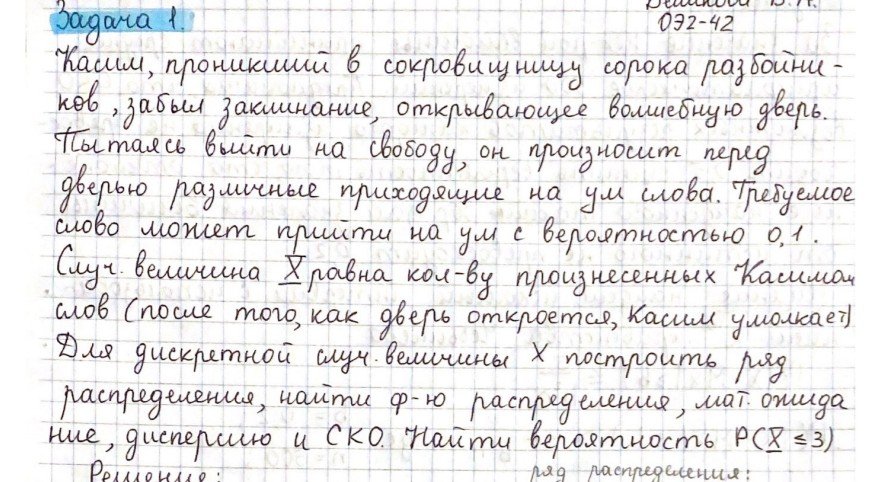 Задача 1.
ОЭ2-42
Касим, проникший в сокровищницу сорока разбойни-
ков, забыл заклинание, открывающее волшебную дверь.
Пытаясь выйти на свободу, он произносит перед
дверью различные приходящие на ум слова. Требуемое
слово может прийти на ум с вероятностью 0,1.
Случ. величина X равна кол-ву произнесенных Касимом
слов (после того, как дверь откроется, Касим умолкает)
Для дискретной случ. величины X построить ряд
распределения, найти ф-ю распределения, мат. ожида
ние, дисперсию и СКО. Найти вероятность P(X ≤ 3)
Решение:
ряд распределения: